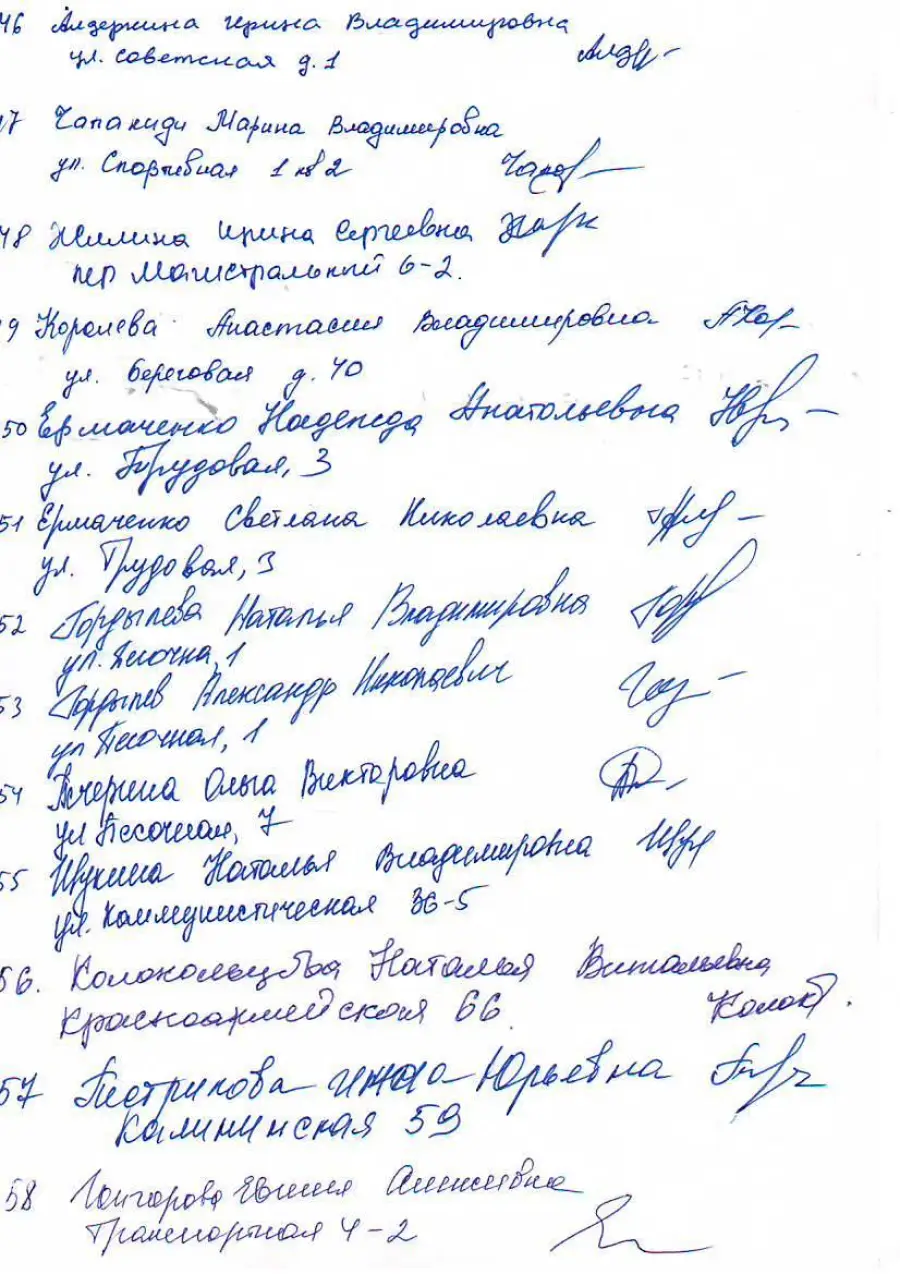 46 Алдеркина Ирина Владимировна
ул. Советская д. 1
17 Чапакиди Марина Владимировна
ул. Спортивная 1 кв 2
48 Жилина Ирина Сергеевна
пер Магистральный 6-2.
19 Королева Анастасия Владимировна
ул. Береговая д. 40
50 Ермаченко Надежда Анатольевна
ул. Трудовая, 3
51 Ермаченко Светлана Николаевна
ул. Трудовая, 3
52 Гордылева Наталья Владимировна
ул. Песочна, 1
53 Гордылев Александр Николаевич
ул Песочная, 1
54 Ольга Викторовна
ул Песочная, 7
55 Щукина Наталья Владимировна
ул. Коммунистическая 36-5
56. Колокольцова Наталья Витальевна
Красноармейская 66 Колок
57 Пестрикова Юрьевна
Калининская 59
58 Алексеевна
Транспортная 4-2